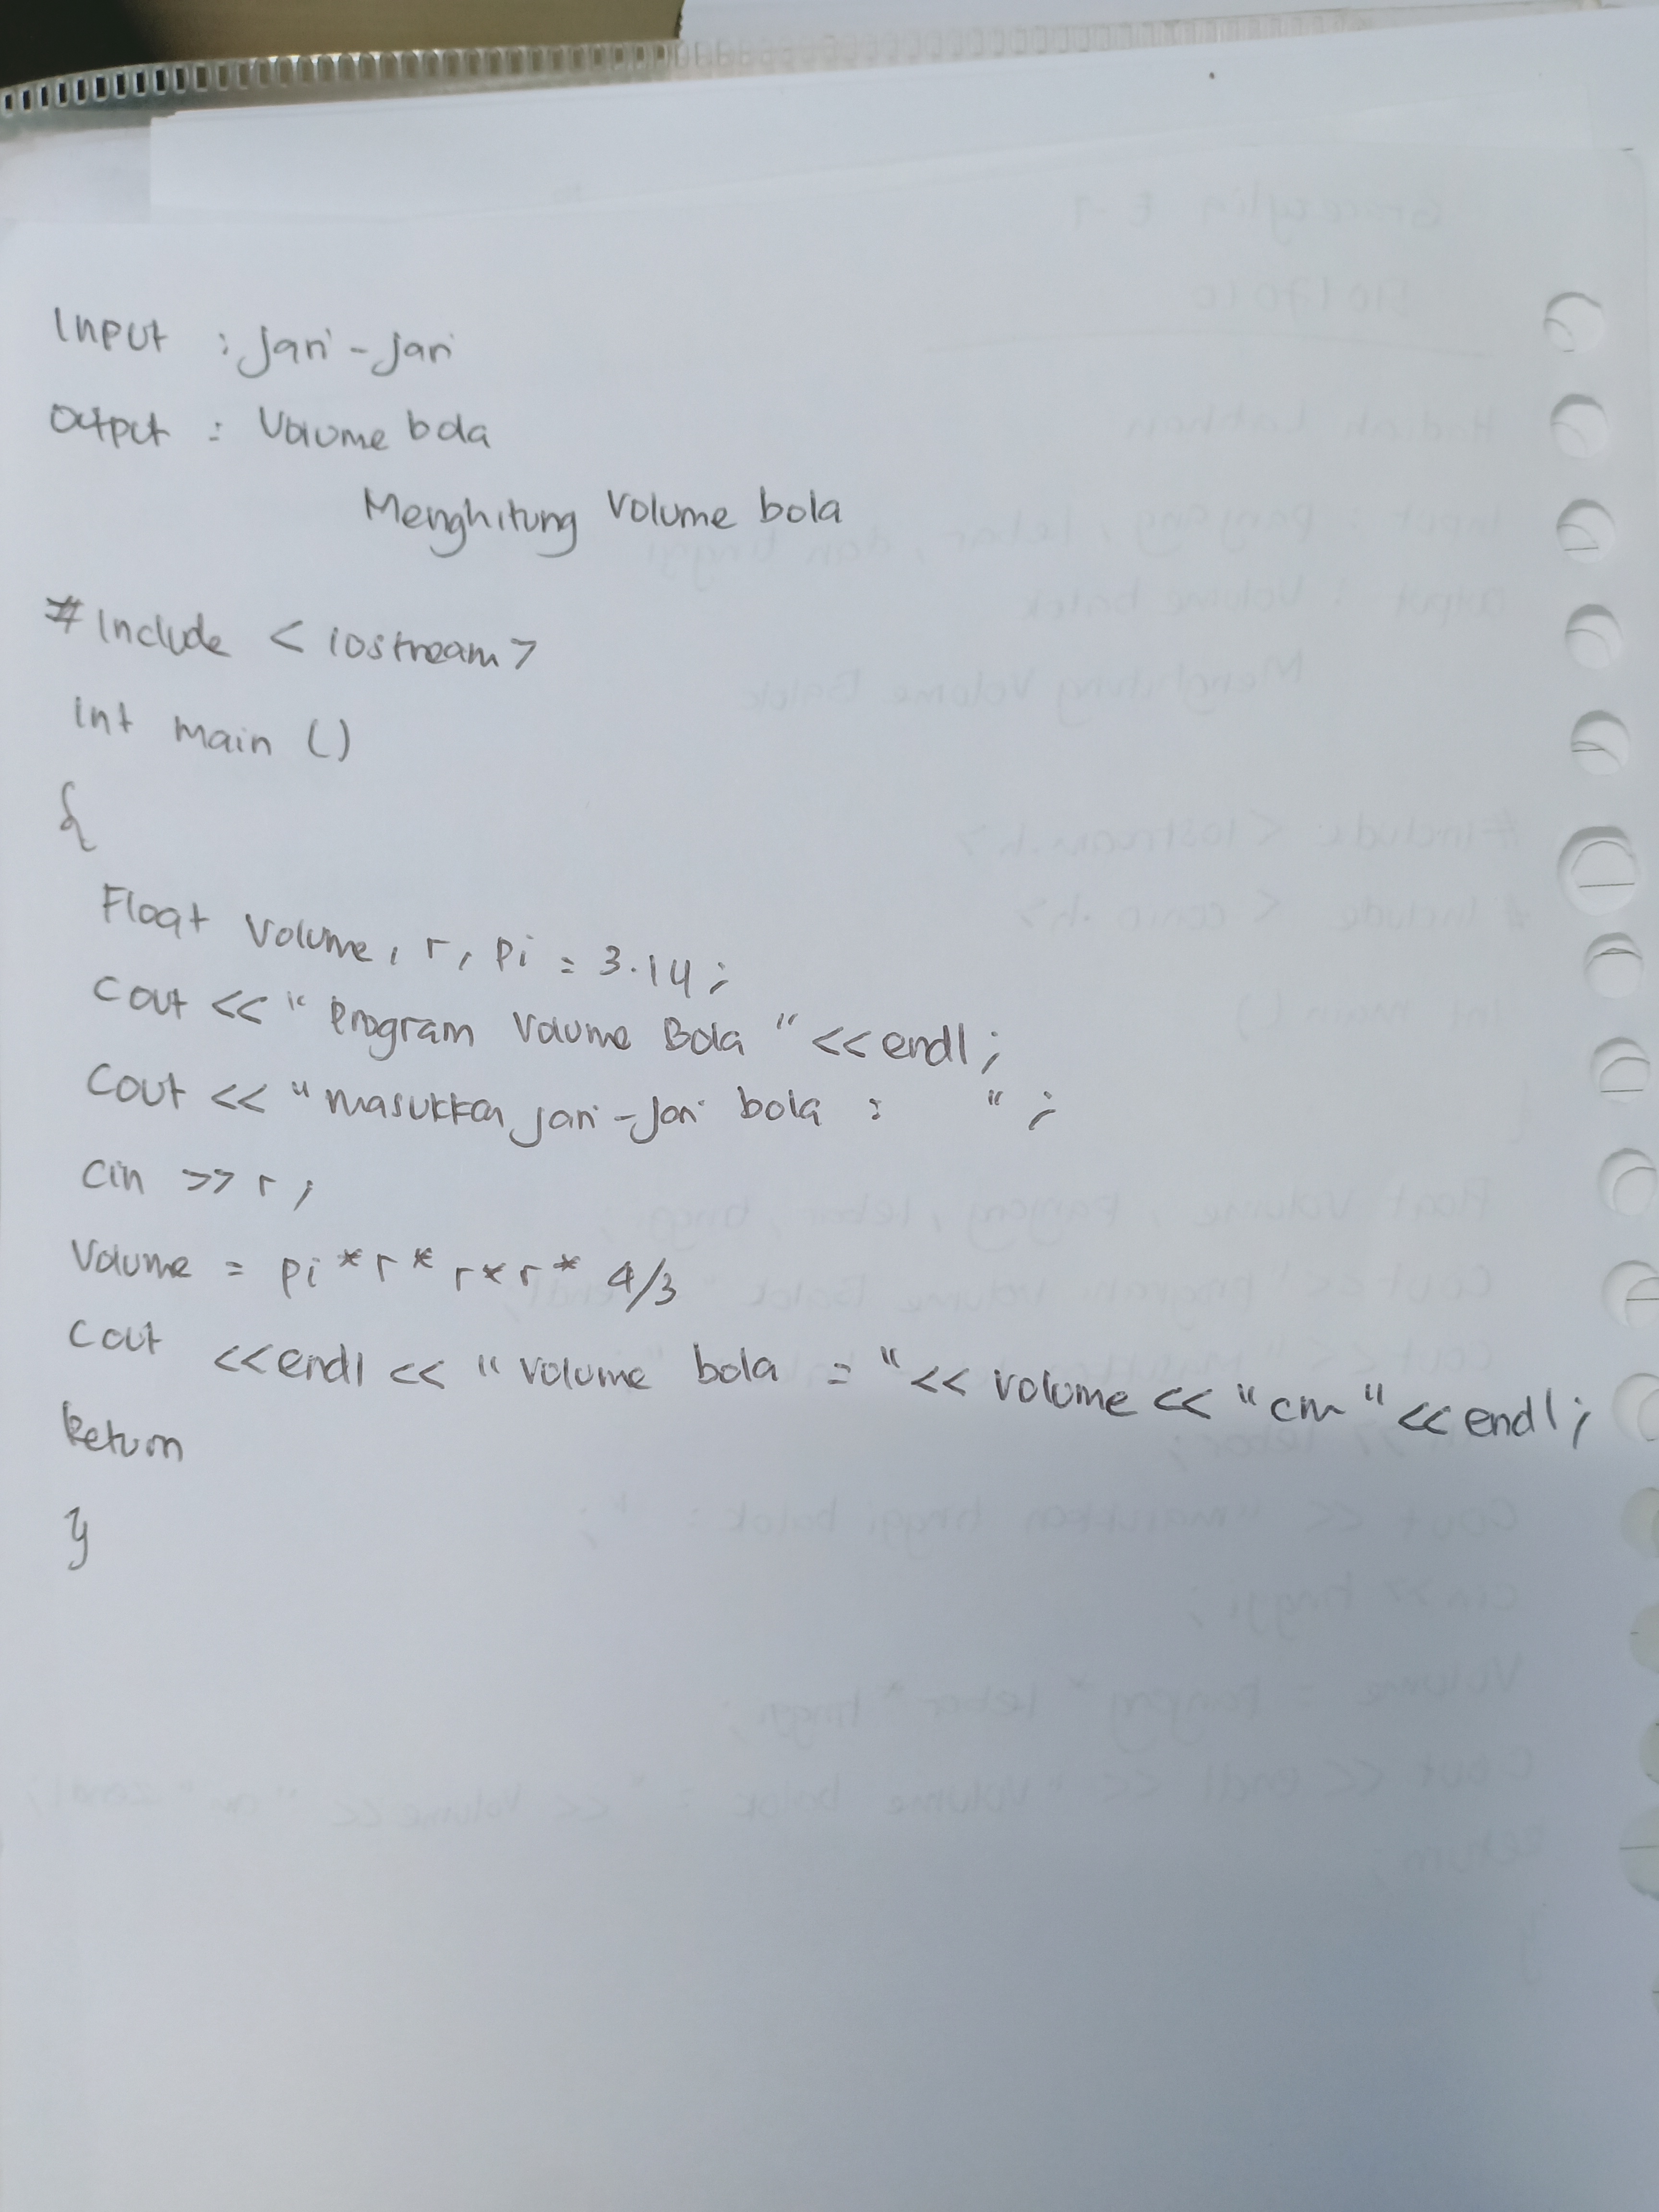 Input : jari-jari
Output : Volume bola
Menghitung Volume bola
#Include <iostream>
int main ()
{
Float Volume, r, pi = 3.14;
Cout << "Program Volume Bola" <<endl;
Cout << "masukkan jari-jari bola : ";
Cin >> r;
Volume = pi*r*r*r*4/3
Cout <<endl << "volume bola = "<< volume << "cm" << endl;
Return
}